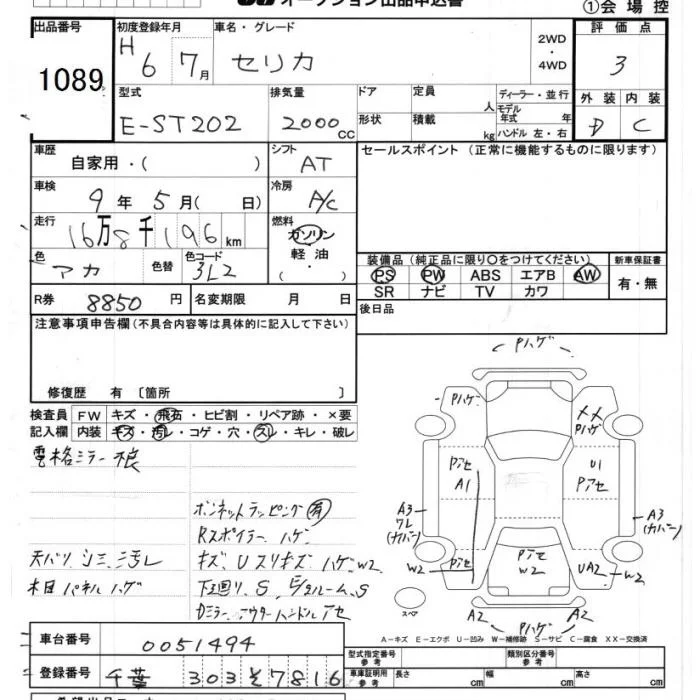 オークション出品申込書
①会場控
出品番号
1089
初度登録年月
H 6 7月
車名・グレード
セリカ
2WD
・
4WD
評価点
3
型式
E-ST202
排気量
2000 CC
ドア
形状
定員
人
積載
kg
ディーラー・並行
モデル年式 年
ハンドル 左・右
外装 内装
D C
車歴
自家用・( )
シフト
AT
セールスポイント (正常に機能するものに限ります)
車検
9年 5月( 日)
冷房
A/C
走行
16万8千196km
燃料
ガソリン
軽油
・
( )
色
アカ
色替
色コード
3L2
装備品(純正品に限り○をつけてください)
PS PW ABS エアB AW
SR ナビ TV カワ
新車保証書
有・無
R券
8850円
名変期限 月 日
後日品
注意事項申告欄(不具合内容等は具体的に記入して下さい)
修復歴 有〔箇所 〕
検査員
記入欄
FW キズ・飛石・ヒビ割・リペア跡・×要
内装 キズ・汚レ・コゲ・穴・スレ・キレ・破レ
電格ミラー 狼
ボンネットラッピング 有
Rスポイラー ハゲ
天バリ シミ、ヨゴレ
キズ、Uスリキズ ハゲ W2
木目パネル ハゲ
下廻リ、S、E/gルーム、S
Dミラー、アウターハンドル アセ
Pハゲ
Pハゲ
××
Pハゲ
Pアセ
A1
U1
Pアセ
A3
ワレ
(カバー)
A3
(カバー)
W2
Pアセ
Pアセ
W2
UA2
W2
スペア
A2
Pハゲ
A2
A-キズ E-エクボ U-凹み W-補修跡 S-サビ C-腐食 XX-交換済
車台番号
0051494
登録番号
千葉 303 そ 7816
型式指定番号
参考
類別区分番号
参考
車庫証明用
参考
長さ cm
幅 cm
高さ cm